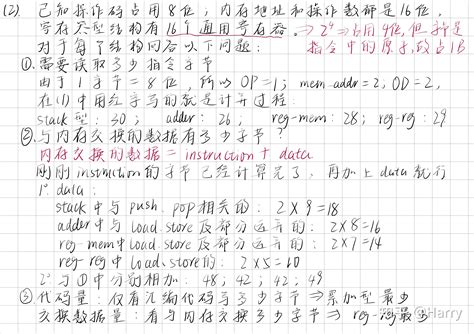 (2). 已知操作码占用8位，内存地址和操作数都是16位，
寄存器型结构有16个通用寄存器 ⇒ 2⁴ ⇒ 占用4位，但为
对于每个结构回答以下问题： 指令中的原子，故占1B
①. 需要读取多少指令字节
由于1字节=8位，所以OP=1；mem-addr=2，OD=2，
在(1)中用红字写的就是计算过程：
stack型：30； adder：26； reg-mem：28；reg-reg：29
②. 与内存交换的数据有多少字节？
内存交换的数据 = instruction + data
刚刚instruction的字节已经计算完了，再加上data就行
1° data：
stack中与push、pop相关的：2×9=18
adder中与load、store及部分运算的：2×8=16
reg-mem中load、store及部分运算的：2×7=14
reg-reg中load、store的：2×5=10
2° 与①中分别相加：48；42；42；49
③ 代码量：仅有汇编代码与多少字节 ⇒ 累加型最少
交换数据量：有与内存交换多少字节 ⇒ reg-reg最少
@Harry